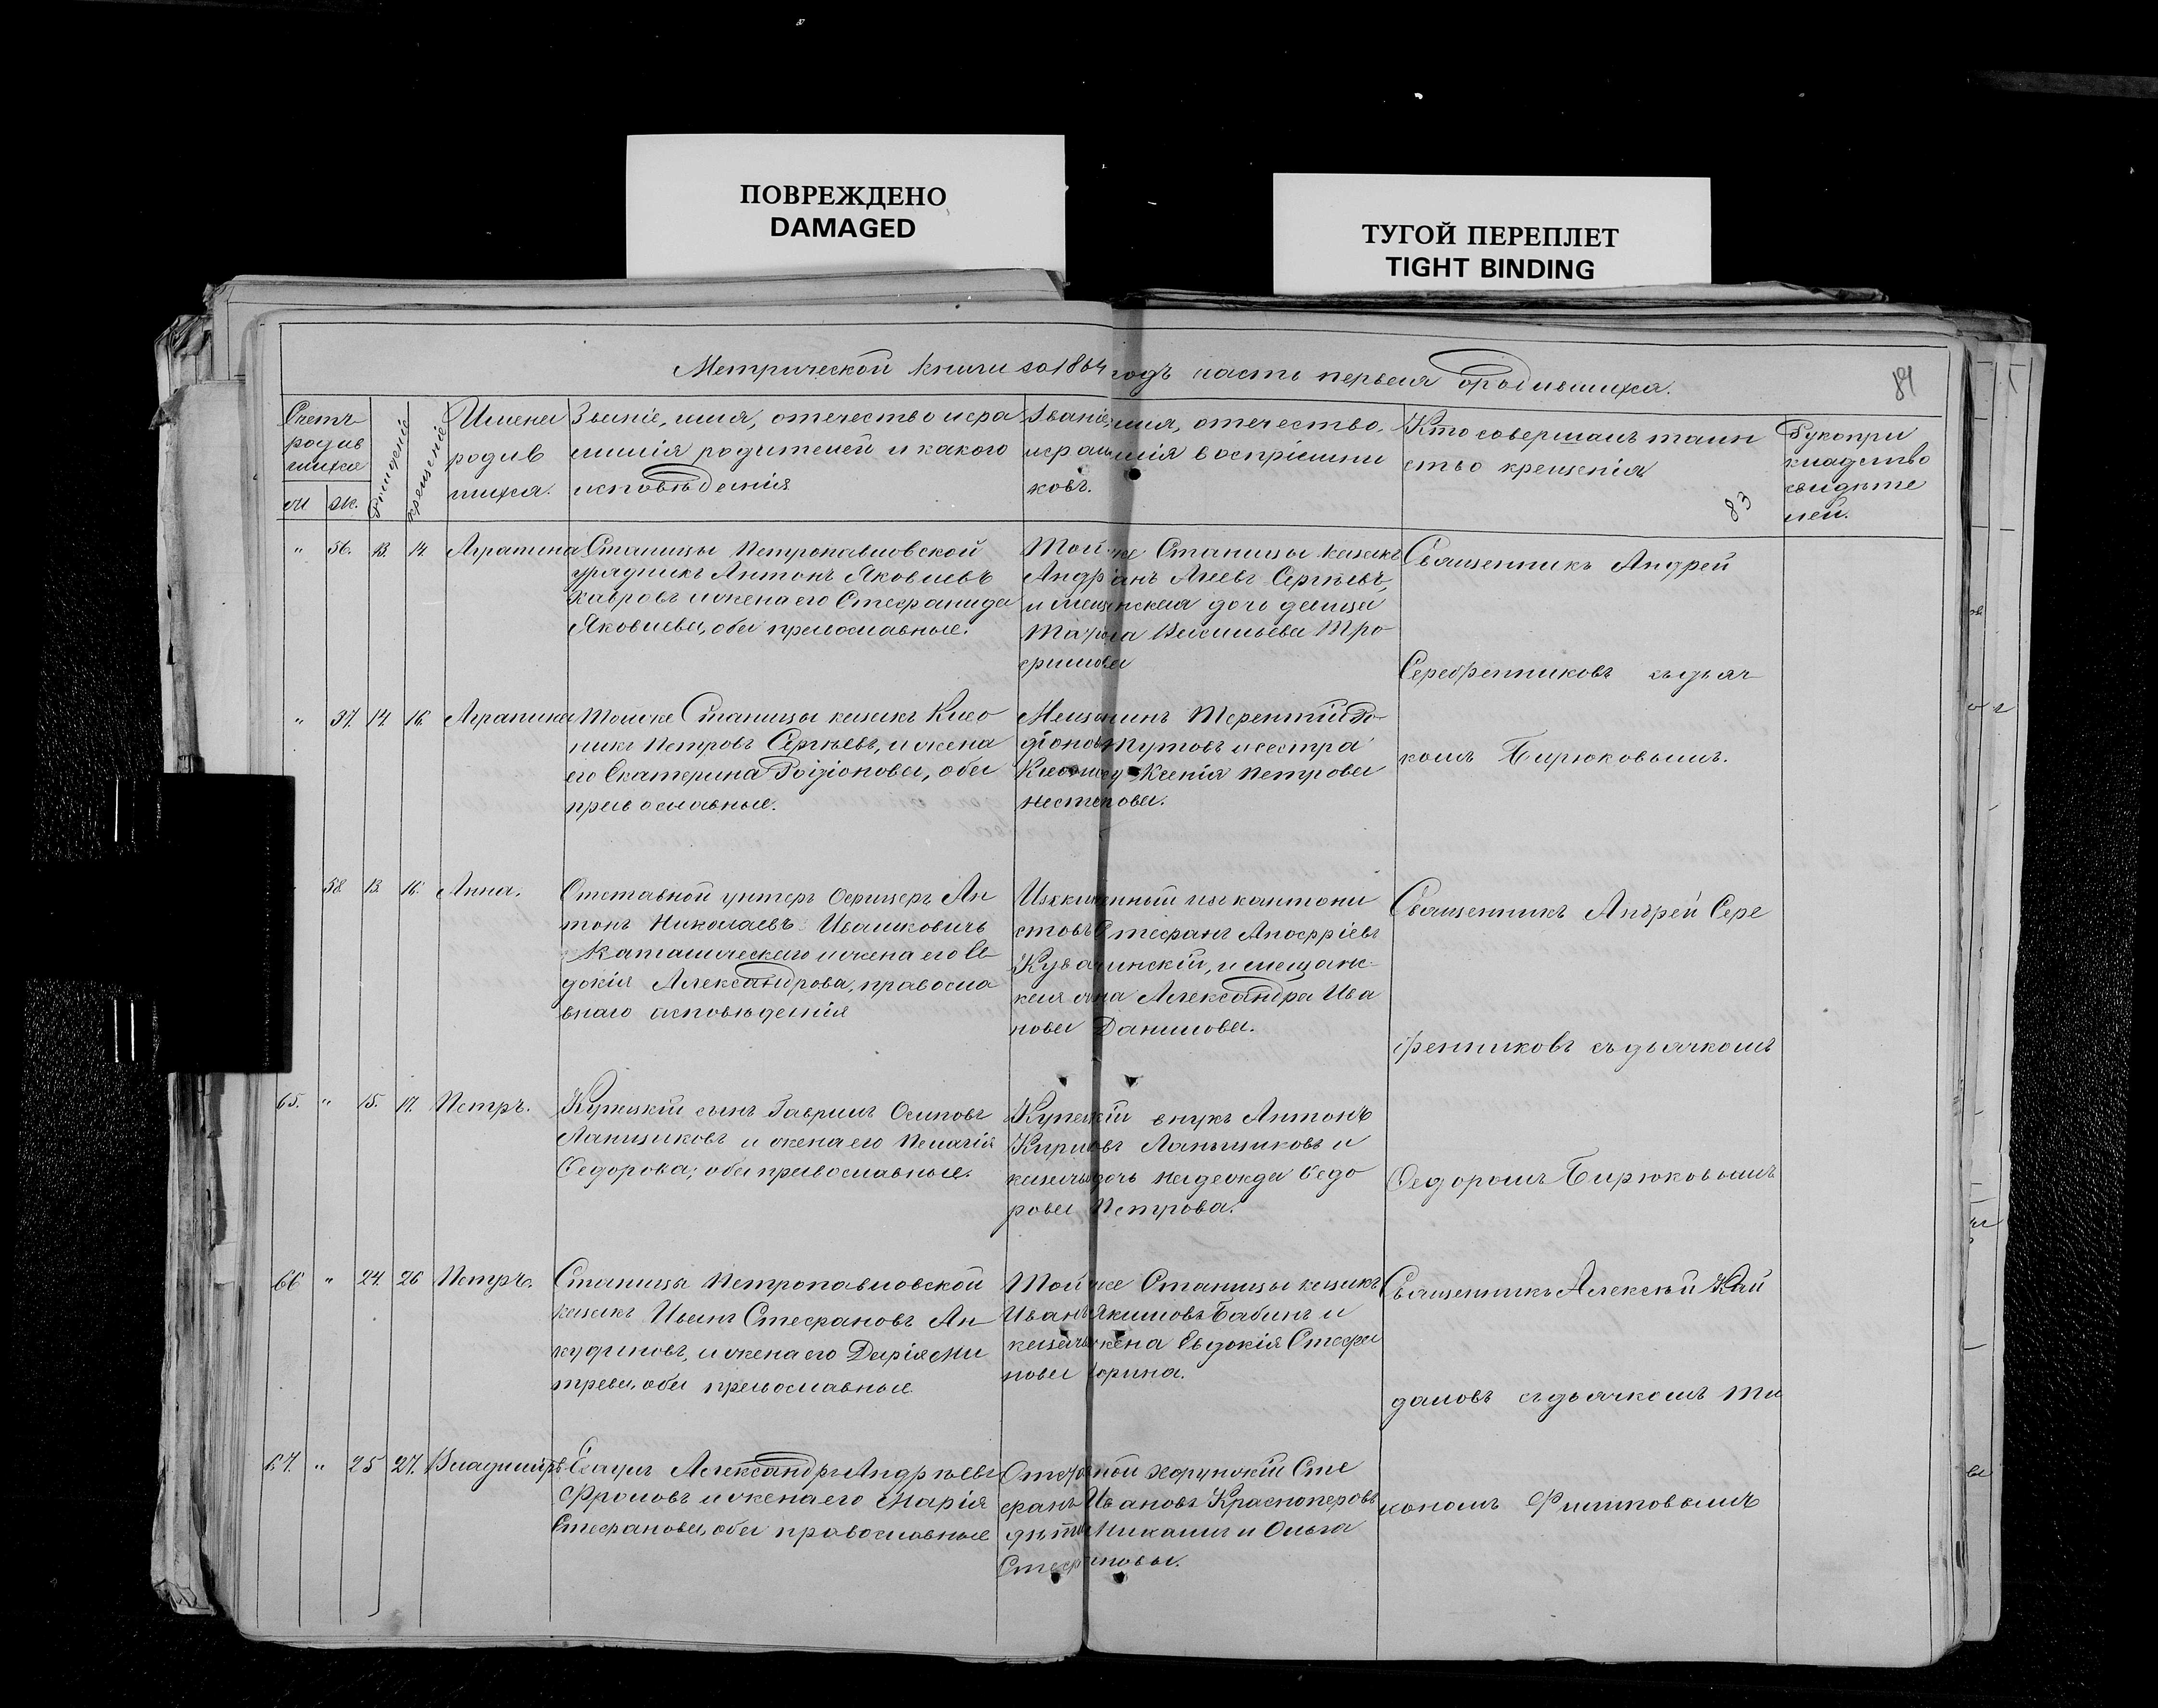 ПОВРЕЖДЕНО
DAMAGED
ТУГОЙ ПЕРЕПЛЕТ
TIGHT BINDING
Метрической книги за 1864 годъ часть первая о родившихся.
84
83
Счетъ
родив
шихся
м.
ж.
Рожденiе
крещенiе
Имена
родив
шихся.
Званiе, имя, отечество и фа
милiя родителей и какого
исповѣданiя
Званiе, имя, отечество,
и фамилiя воспрiемни
ковъ.
Кто совершалъ таин
ство крещенiя
Рукопри
кладство
свидѣте
лей.
" 56. 13. 14 Агрипина
Станицы Петропавловской
урядникъ Антонъ Яковлевъ
и жена его Стефанида
Яковлева, оба православные.
Той же Станицы казакъ
Андрiанъ Сергѣевъ,
и мещанская дочь девица
Васильева Тро
фимова
Священникъ Андрей
Серебренниковъ съ дьяч
комъ Бирюковымъ.
" 37. 14 16 Агрипина
Той же Станицы казакъ
Петровъ Сергѣевъ, и жена
его Екатерина Родiонова, оба
православные.
Мещанинъ Терентiй Ро
дiоновъ и сестра
Ксенiя Петрова
58 13. 16. Анна.
Отставной унтеръ Офицеръ Ан
тонъ Николаевъ Ивашковичъ
Католическаго и жена его Ев
докiя Александрова, правосла
внаго исповѣданiя
Изключенный изъ кантони
стовъ Стефанъ
и мещанс
кая жена Александра Ива
нова Данилова.
Священникъ Андрей Сере
бренниковъ съ дьячкомъ
Федоромъ Бирюковымъ
65. " 15. 17. Петръ.
Купецкiй сынъ Гаврiилъ Осиповъ
Ланщиковъ и жена его Пелагiя
Федорова; оба православные.
Купецкiй внукъ Антонъ
Кириловъ Ланщиковъ и
казачья дочь Надежда Федо
рова Петрова.
66 " 24 26 Петръ.
Станицы Петропавловской
казакъ Иванъ Стефановъ Ан
кудиновъ, и жена его Дарiя Ми
трева, оба православные
Той же Станицы казакъ
Иванъ Якимовъ Бабинъ и
казачья жена Евдокiя Стефа
нова
Священникъ Алексѣй Кай
даловъ съ дьячкомъ Ти
хономъ Филиповымъ
67. " 25 27. Владимiръ
Есаулъ Александръ Андрѣевъ
Фроловъ и жена его Марiя
Стефанова, оба православные
Отставной Хорунжiй Сте
фанъ Ивановъ Красноперовъ
дѣти Михаилъ и Ольга
Стефановы.